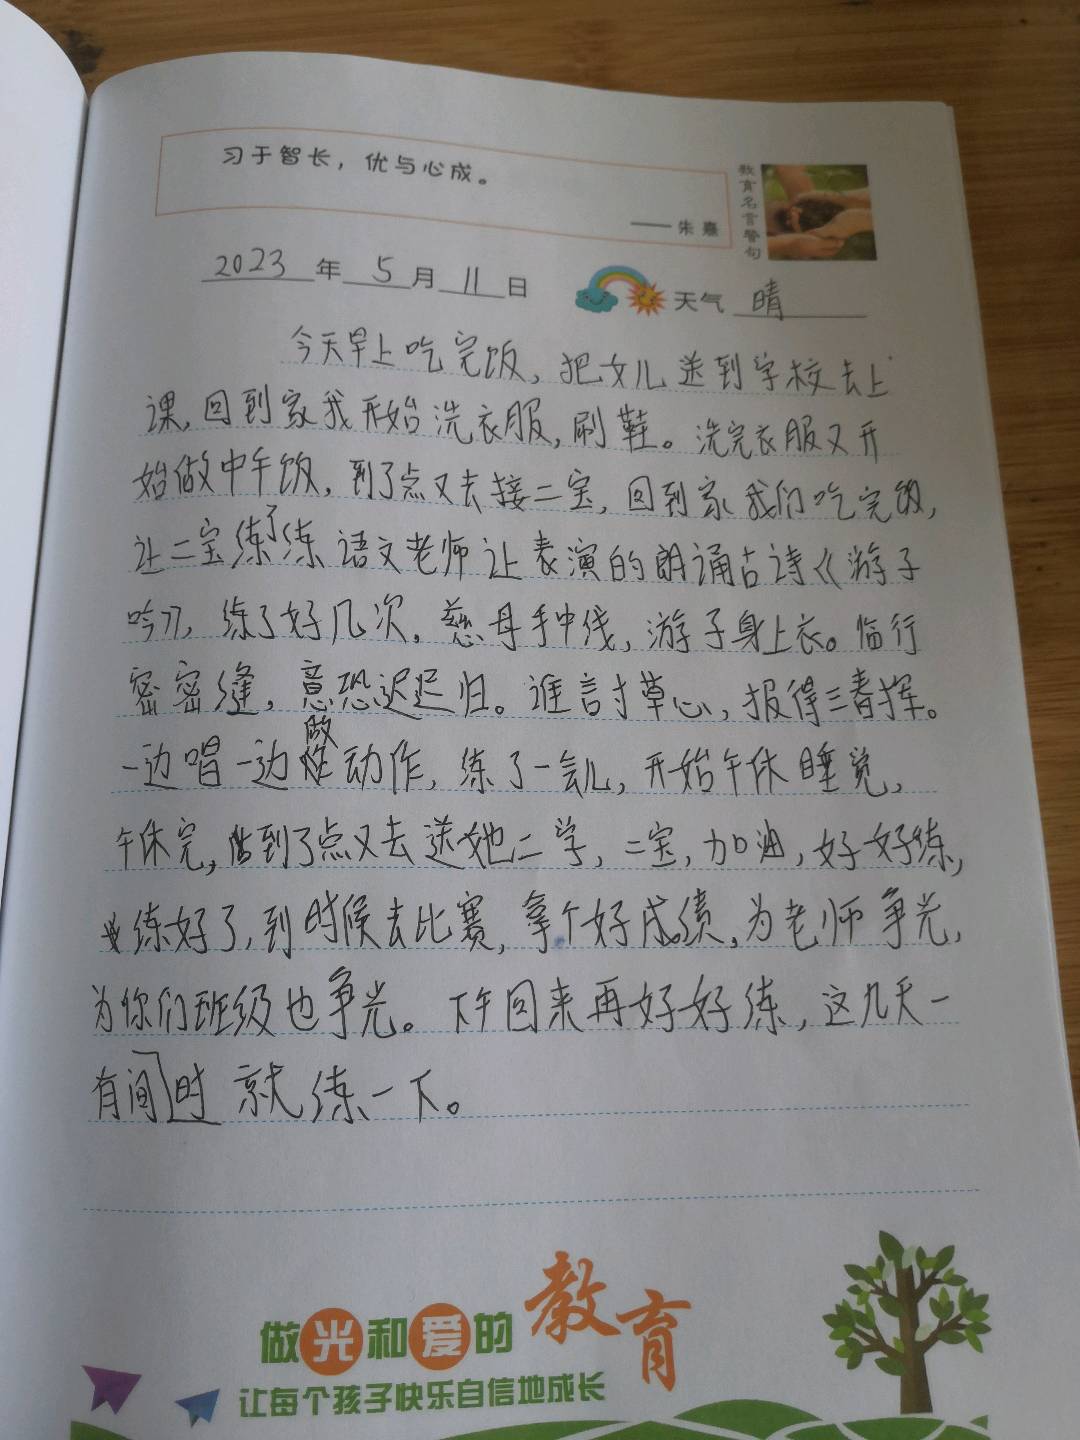 习于智长，优与心成。
——朱熹
教育名言警句
2023年5月11日 天气 晴
今天早上吃完饭，把女儿送到学校去上
课，回到家我开始洗衣服，刷鞋。洗完衣服又开
始做中午饭，到了点又去接二宝，回到家我们吃完饭，
让二宝练了练语文老师让表演的朗诵古诗《游子
吟》，练了好几次。慈母手中线，游子身上衣。临行
密密缝，意恐迟迟归。谁言寸草心，报得三春挥。
一边唱一边做动作，练了一会儿，开始午休睡觉，
午休完，到了点又去送她二学，二宝，加油，好好练，
练好了，到时候去比赛，拿个好成绩，为老师争光，
为你们班级也争光。下午回来再好好练，这几天一
有间时就练一下。
做光和爱的教育
让每个孩子快乐自信地成长